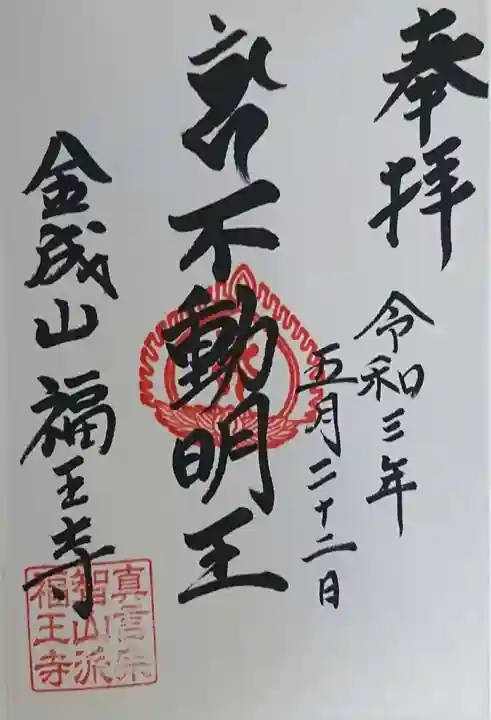 奉拝
令和三年
五月二十二日
不動明王
金成山福王寺
真言宗
智山派
福王寺